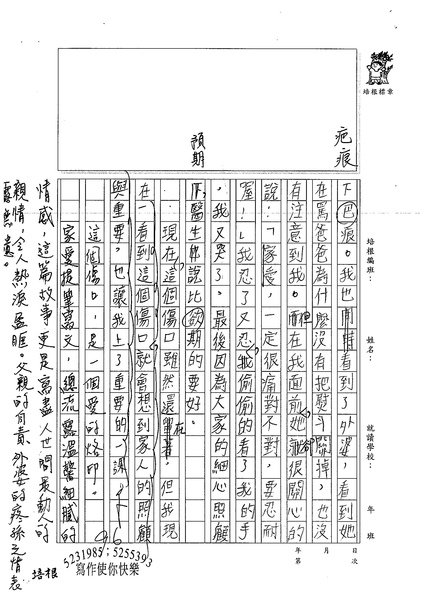 疤痕
預期
培根標章
培根編班：
姓名：
就讀學校：
年 班
年 月 日
第 次
下巴痕。我也同時看到了外婆，看到她
在罵爸爸為什麼沒有把熨斗關掉，也沒
有注意到我。但在我面前她卻很關心的
說：「家愛，一定很痛對不對，要忍耐
喔！我忍了又忍，我偷偷的看了我的手
，我又哭了。最後因為大家的細心照顧
下，醫生說比預期的要好。
現在這個傷口雖然還在，但我現
在一看到這個傷口就會想到家人的照顧
與重要，也讓我上了重要的一課。
這個傷，是一個愛的烙印。
家愛從
文，總流露溫馨細膩的
情感，這篇故事更是寫盡人世間最動人的
親情，令人熱淚盈眶。父親的自責、外婆的疼孫之情表
露無遺。
培根
5231985；5255393
寫作使你快樂